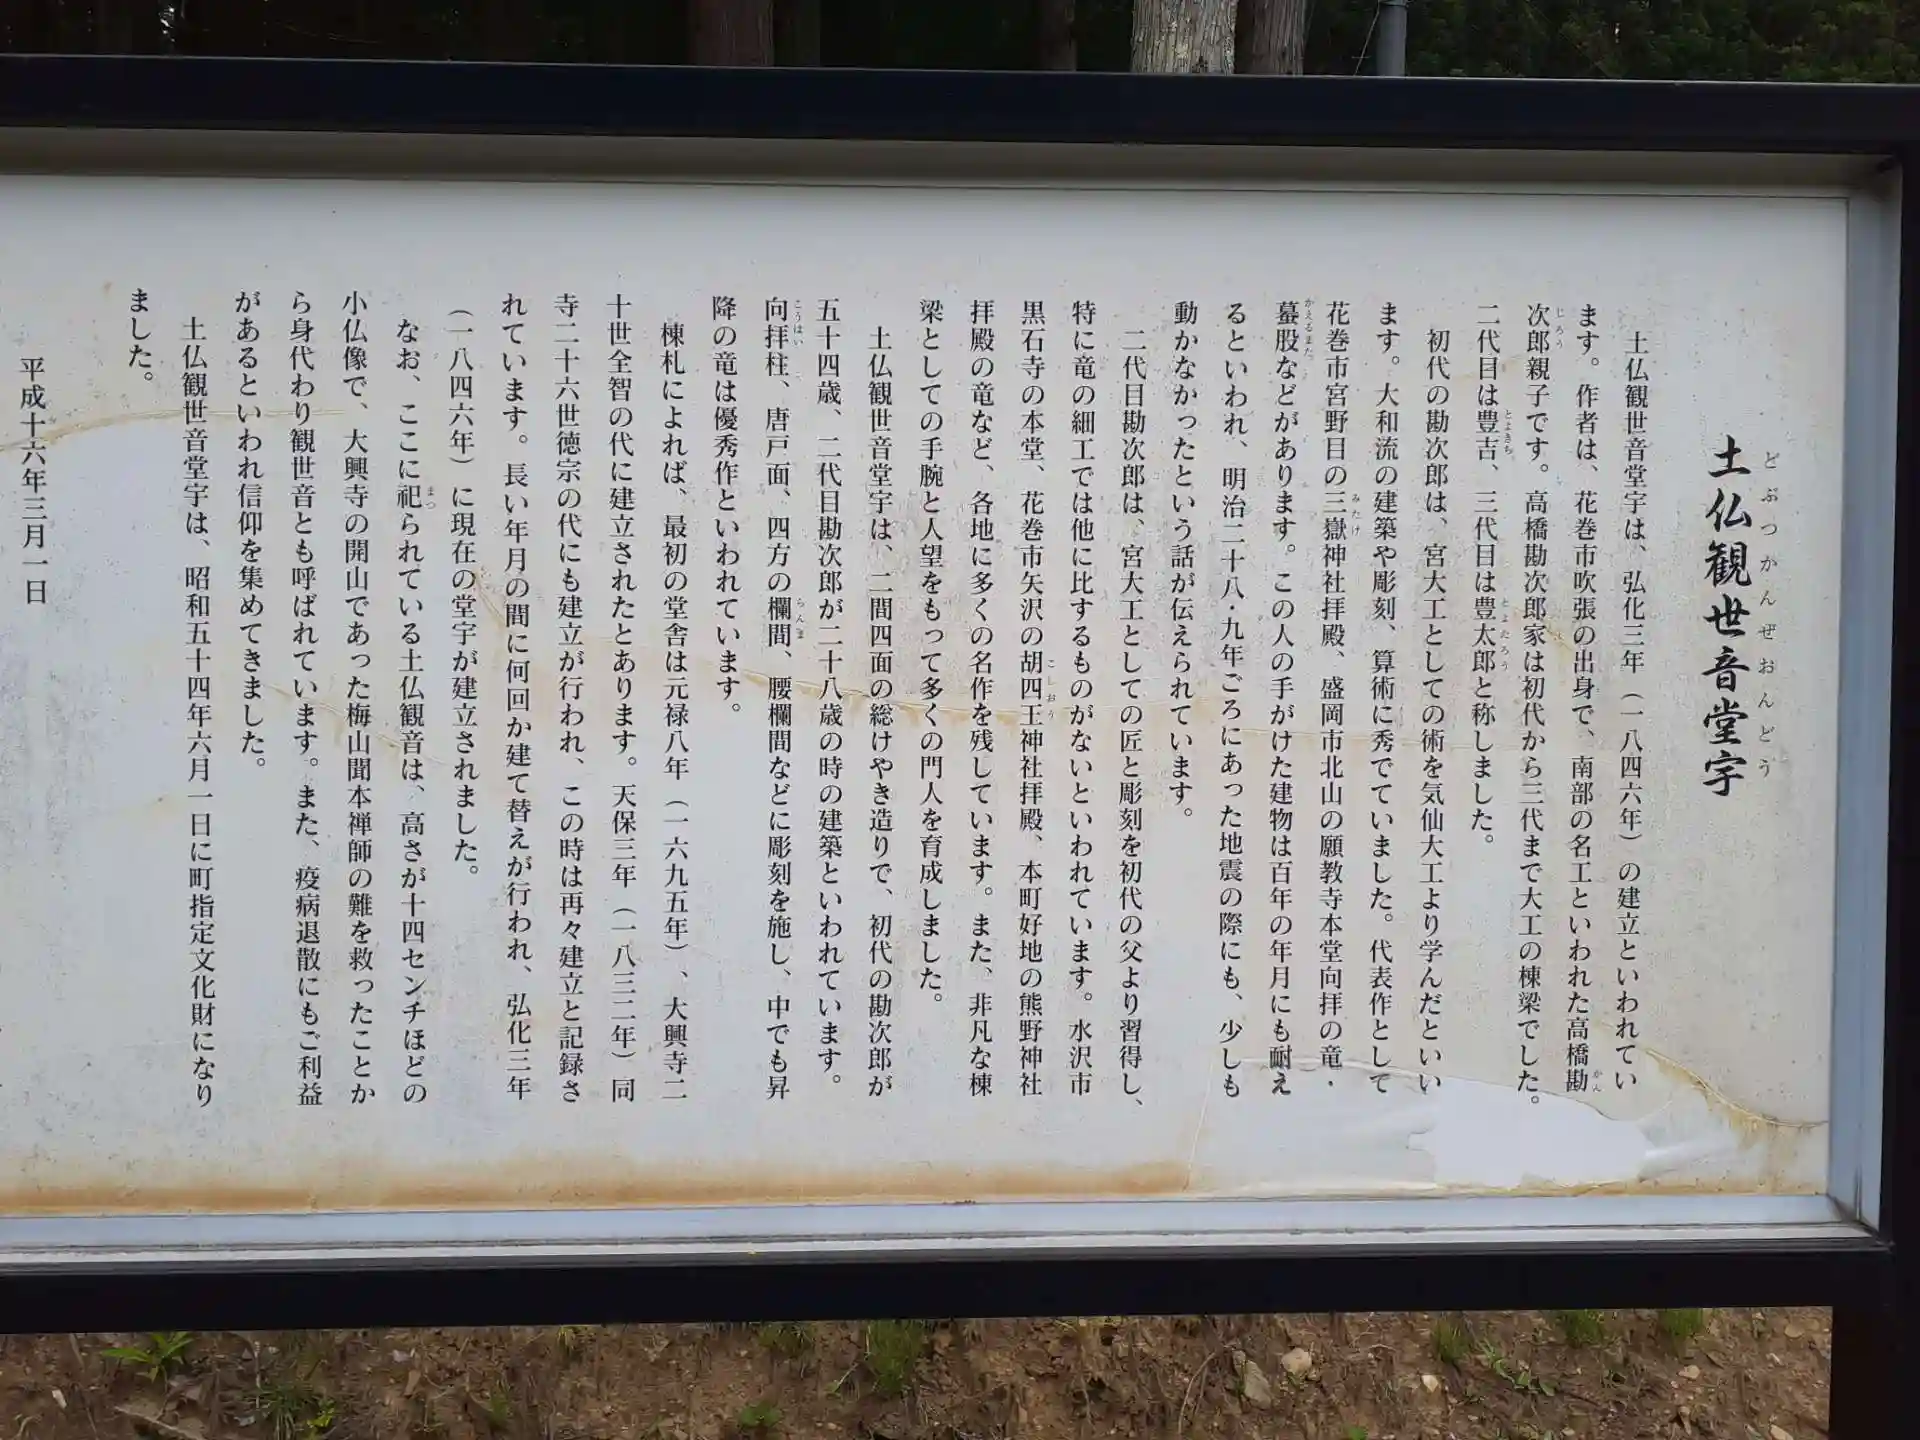 土仏観世音堂宇
どぶつかんぜおんどう
土仏観世音堂宇は、弘化三年（一八四六年）の建立といわれてい
ます。作者は、花巻市吹張の出身で、南部の名工といわれた高橋勘
次郎親子です。高橋勘次郎家は初代から三代まで大工の棟梁でした。
二代目は豊吉、三代目は豊太郎と称しました。
初代の勘次郎は、宮大工としての術を気仙大工より学んだといい
ます。大和流の建築や彫刻、算術に秀でていました。代表作として
花巻市宮野目の三嶽神社拝殿、盛岡市北山の願教寺本堂向拝の竜・
蟇股などがあります。この人の手がけた建物は百年の年月にも耐え
るといわれ、明治二十八・九年ごろにあった地震の際にも、少しも
動かなかったという話が伝えられています。
二代目勘次郎は、宮大工としての匠と彫刻を初代の父より習得し、
特に竜の細工では他に比するものがないといわれています。水沢市
黒石寺の本堂、花巻市矢沢の胡四王神社拝殿、本町好地の熊野神社
拝殿の竜など、各地に多くの名作を残しています。また、非凡な棟
梁としての手腕と人望をもって多くの門人を育成しました。
土仏観世音堂宇は、二間四面の総けやき造りで、初代の勘次郎が
五十四歳、二代目勘次郎が二十八歳の時の建築といわれています。
向拝柱、唐戸面、四方の欄間、腰欄間などに彫刻を施し、中でも昇
降の竜は優秀作といわれています。
棟札によれば、最初の堂舎は元禄八年（一六九五年）、大興寺二
十世全智の代に建立されたとあります。天保三年（一八三二年）同
寺二十六世徳宗の代にも建立が行われ、この時は再々建立と記録さ
れています。長い年月の間に何回か建て替えが行われ、弘化三年
（一八四六年）に現在の堂宇が建立されました。
なお、ここに祀られている土仏観音は、高さが十四センチほどの
小仏像で、大興寺の開山であった梅山聞本禅師の難を救ったことか
ら身代わり観世音とも呼ばれています。また、疫病退散にもご利益
があるといわれ信仰を集めてきました。
土仏観世音堂宇は、昭和五十四年六月一日に町指定文化財になり
ました。
平成十六年三月一日